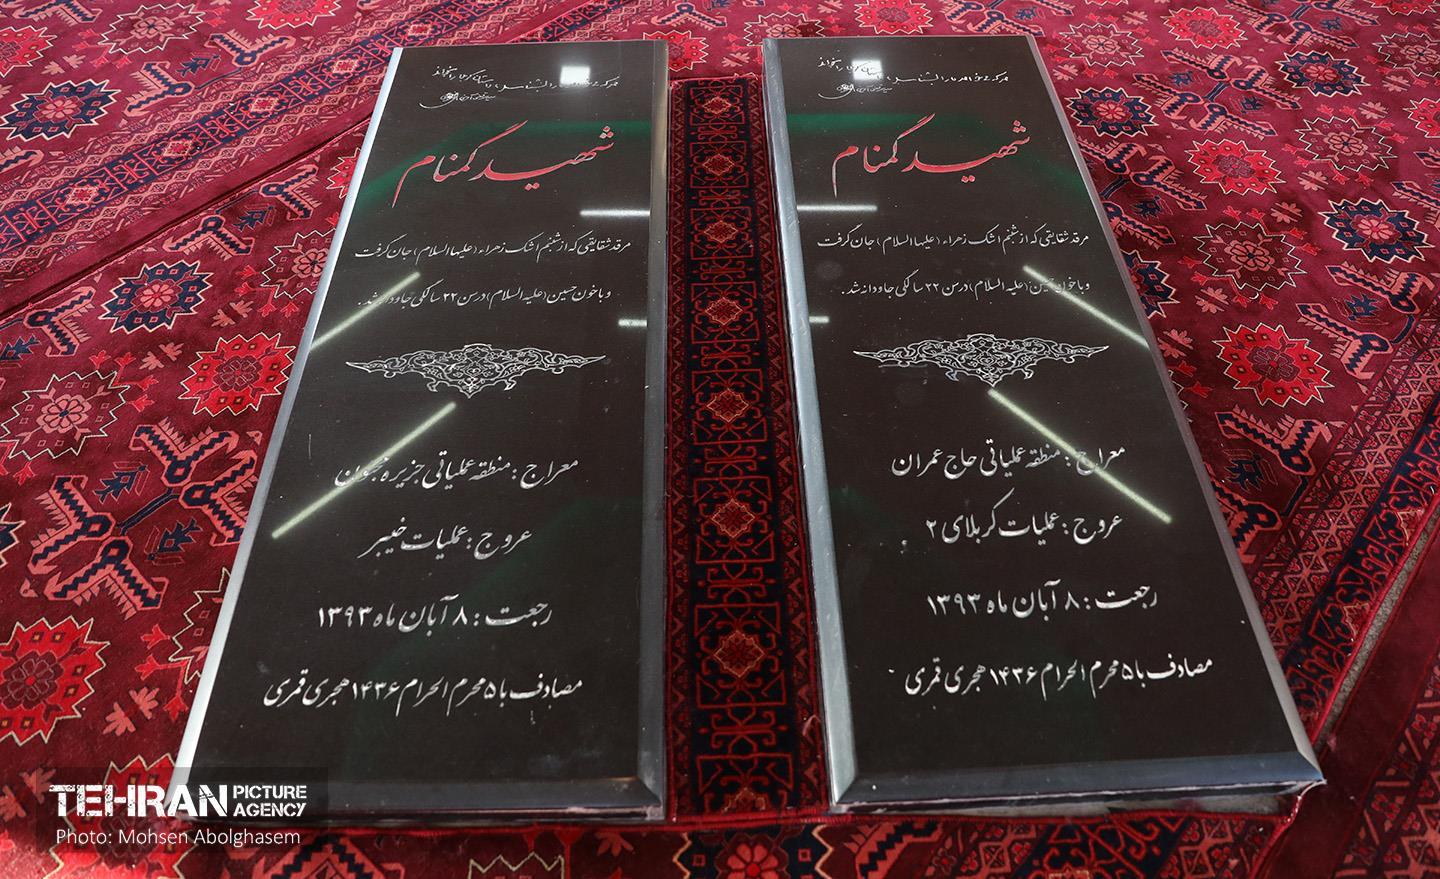 شهید گمنام
مرقد شقایقی که از شبنم اشک زهراء (علیها السلام) جان گرفت
و با خون حسین (علیه السلام) در سن ۲۲ سالگی جاودانه شد.
معراج : منطقه عملیاتی جزیره مجنون
عروج : عملیات خیبر
رجعت : ۸ آبان ماه ۱۳۹۳
مصادف با ۵ محرم الحرام ۱۴۳۶ هجری قمری
شهید گمنام
مرقد شقایقی که از شبنم اشک زهراء (علیها السلام) جان گرفت
و با خون حسین (علیه السلام) در سن ۲۲ سالگی جاودانه شد.
معراج : منطقه عملیاتی حاج عمران
عروج : عملیات کربلای ۲
رجعت : ۸ آبان ماه ۱۳۹۳
مصادف با ۵ محرم الحرام ۱۴۳۶ هجری قمری
TEHRAN PICTURE AGENCY
Photo: Mohsen Abolghasem